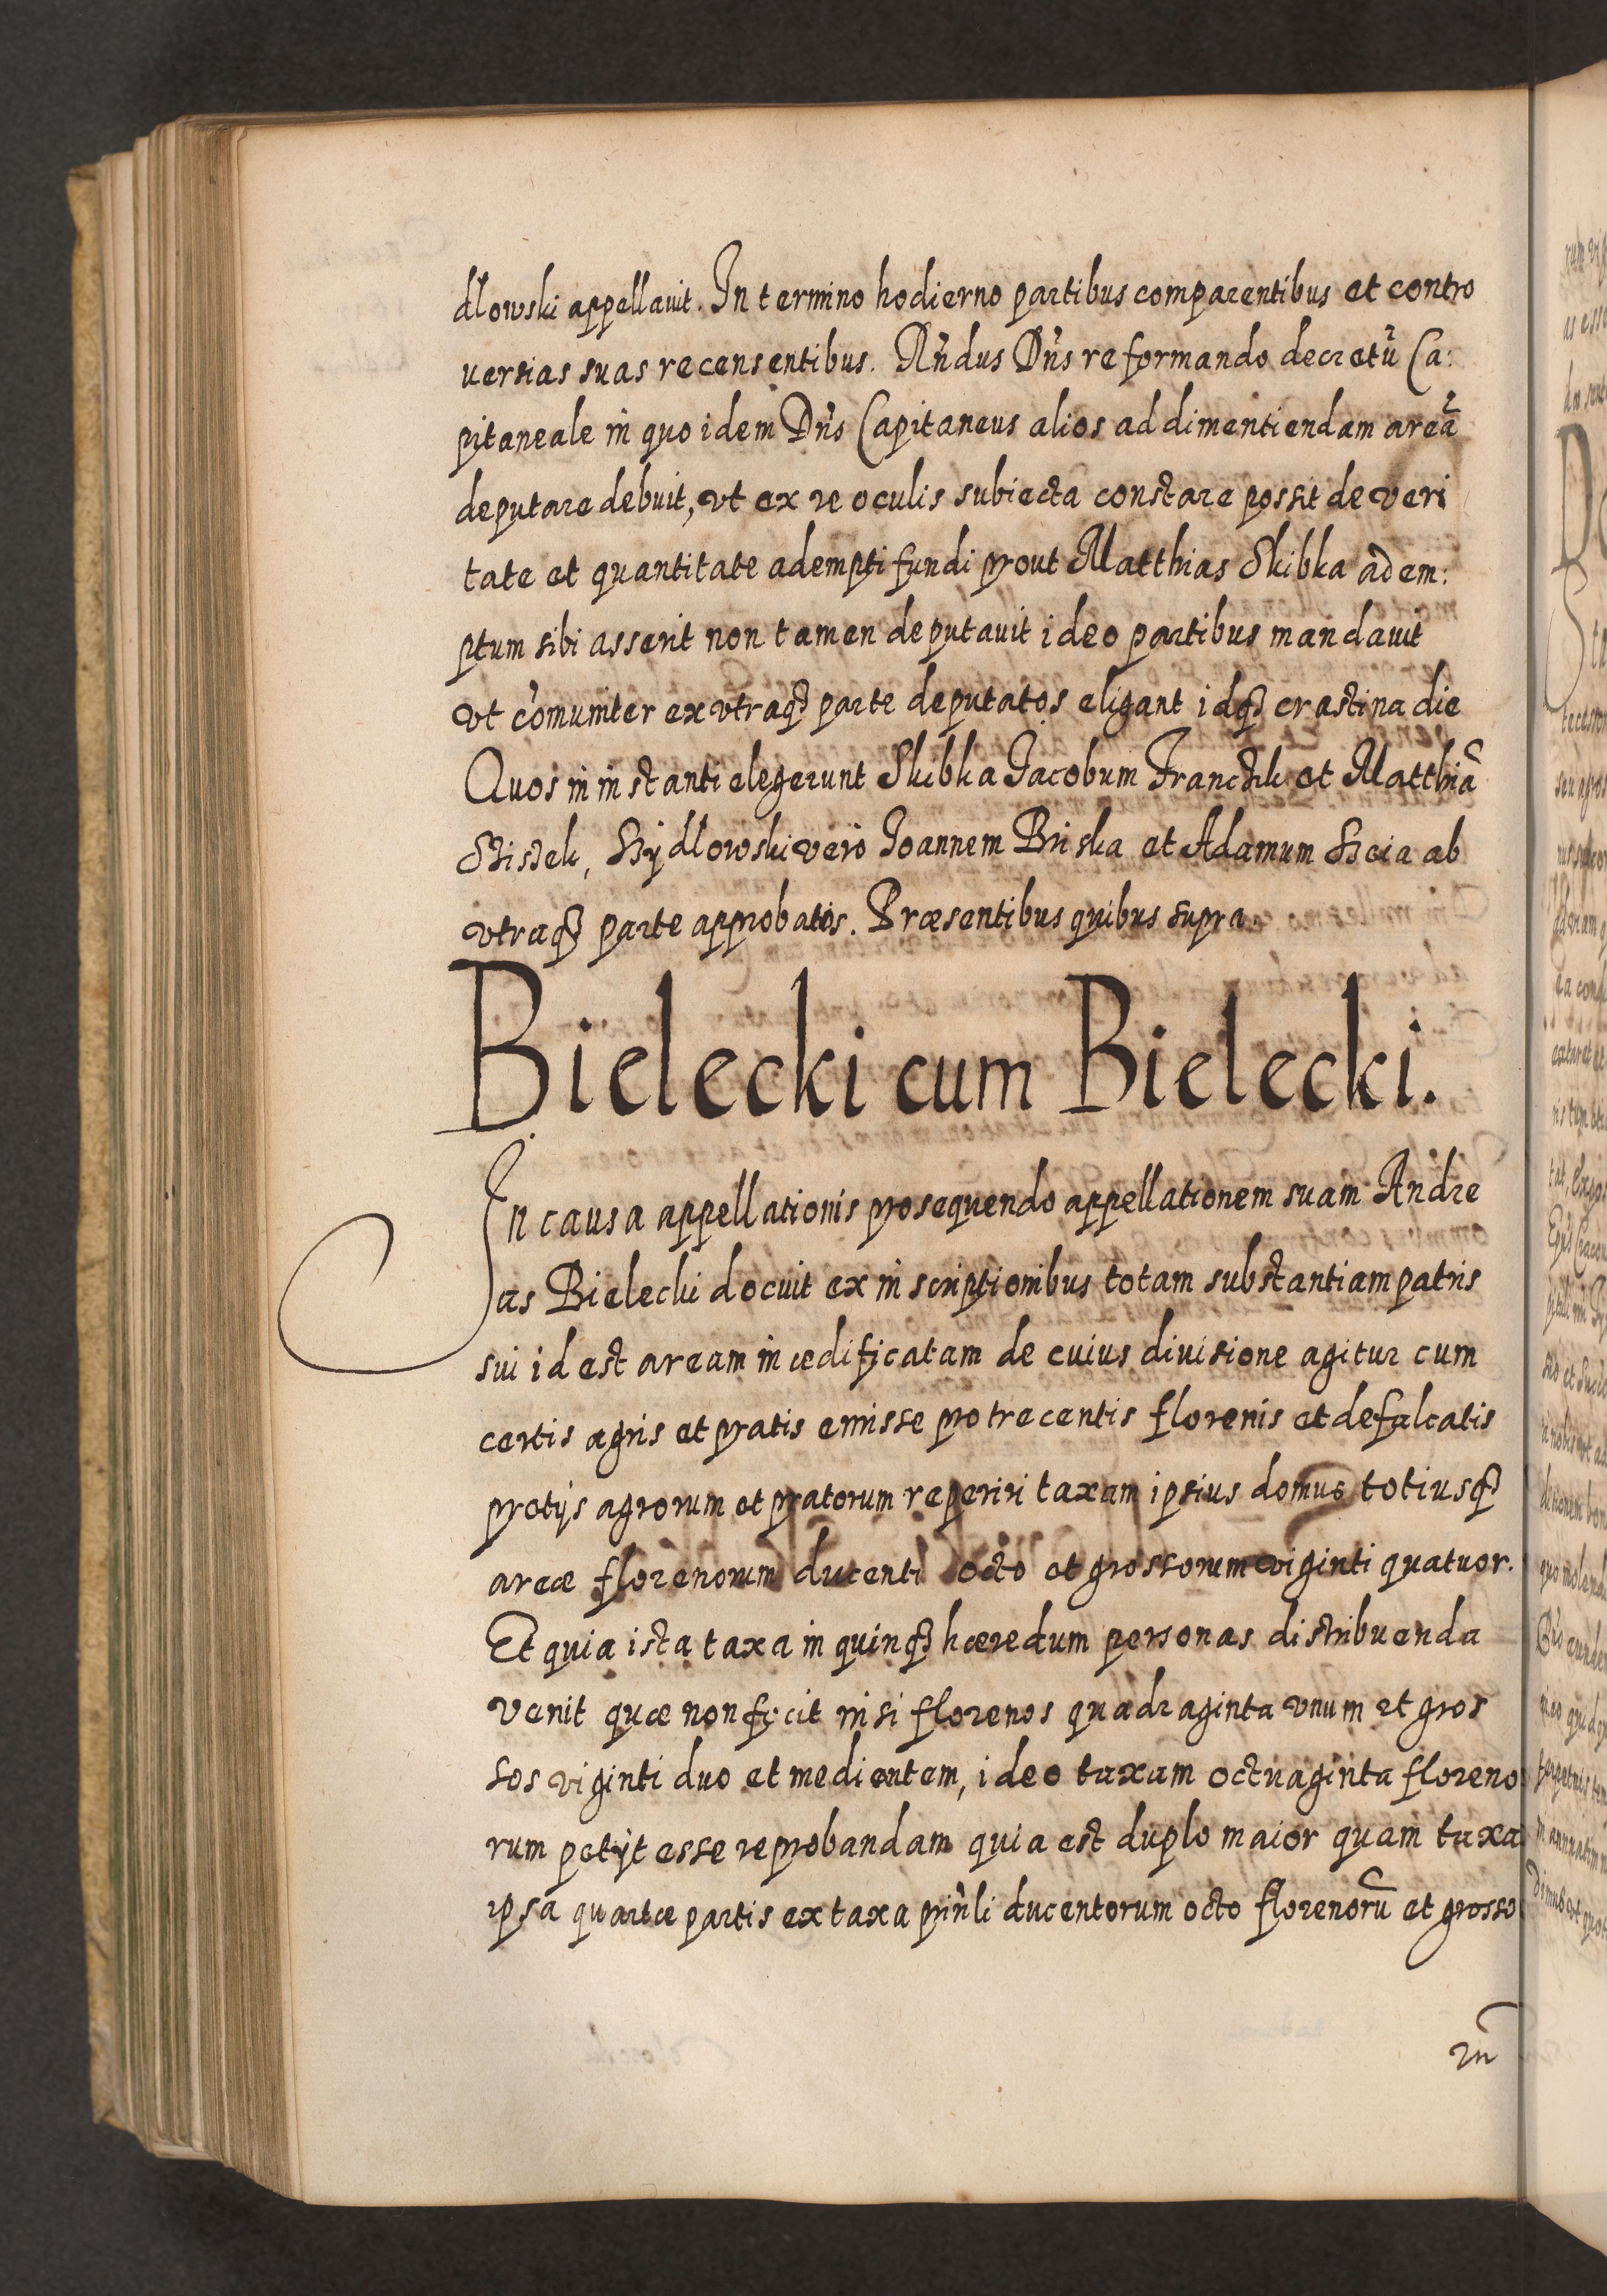 dlowski appellauit. In termino hodierno partibus comparentibus et contro
uersias suas recensentibus. Rñdus Dñs reformando decretũ Ca:
pitaneale in quo idem Dñs Capitaneus alios ad dimentiendam areã
deputare debuit, vt ex re oculis subiecta constare possit de veri
tate et quantitate adempti fundi prout Matthias Skibka adem:
ptum sibi asserit non tamen deputauit ideo partibus mandauit
vt cõmuniter ex vtraqꝫ parte deputatos eligant idqꝫ crastina die
Quos in instanti elegerunt Skibka Jacobum et Matthiã
vero Joannem Briska et Adamum ab
vtraqꝫ parte approbatos. Præsentibus quibus supra.
Bielecki cum Bielecki.
In causa appellationis prosequendo appellationem suam Andre
as Bielecki docuit ex inscriptionibus totam substantiam patris
sui id est aream inædificatam de cuius diuisione agitur cum
certis agris et pratis emisse pro trecentis florenis et defalcatis
pretijs agrorum et pratorum reperiri taxam ipsius domus totiusqꝫ
areæ florenorum ducenti octo et grossorum viginti quatuor.
Et quia ista taxa in quinqꝫ hæredum personas distribuenda
venit quæ non facit nisi florenos quadraginta vnum et gros
sos viginti duo et medientem, ideo taxam octuaginta floreno
rum petijt esse reprobandam quia est duplo maior quam taxa
ipsa quartæ partis ex taxa prinˉli ducentorum octo florenorũ et grosso
rũ